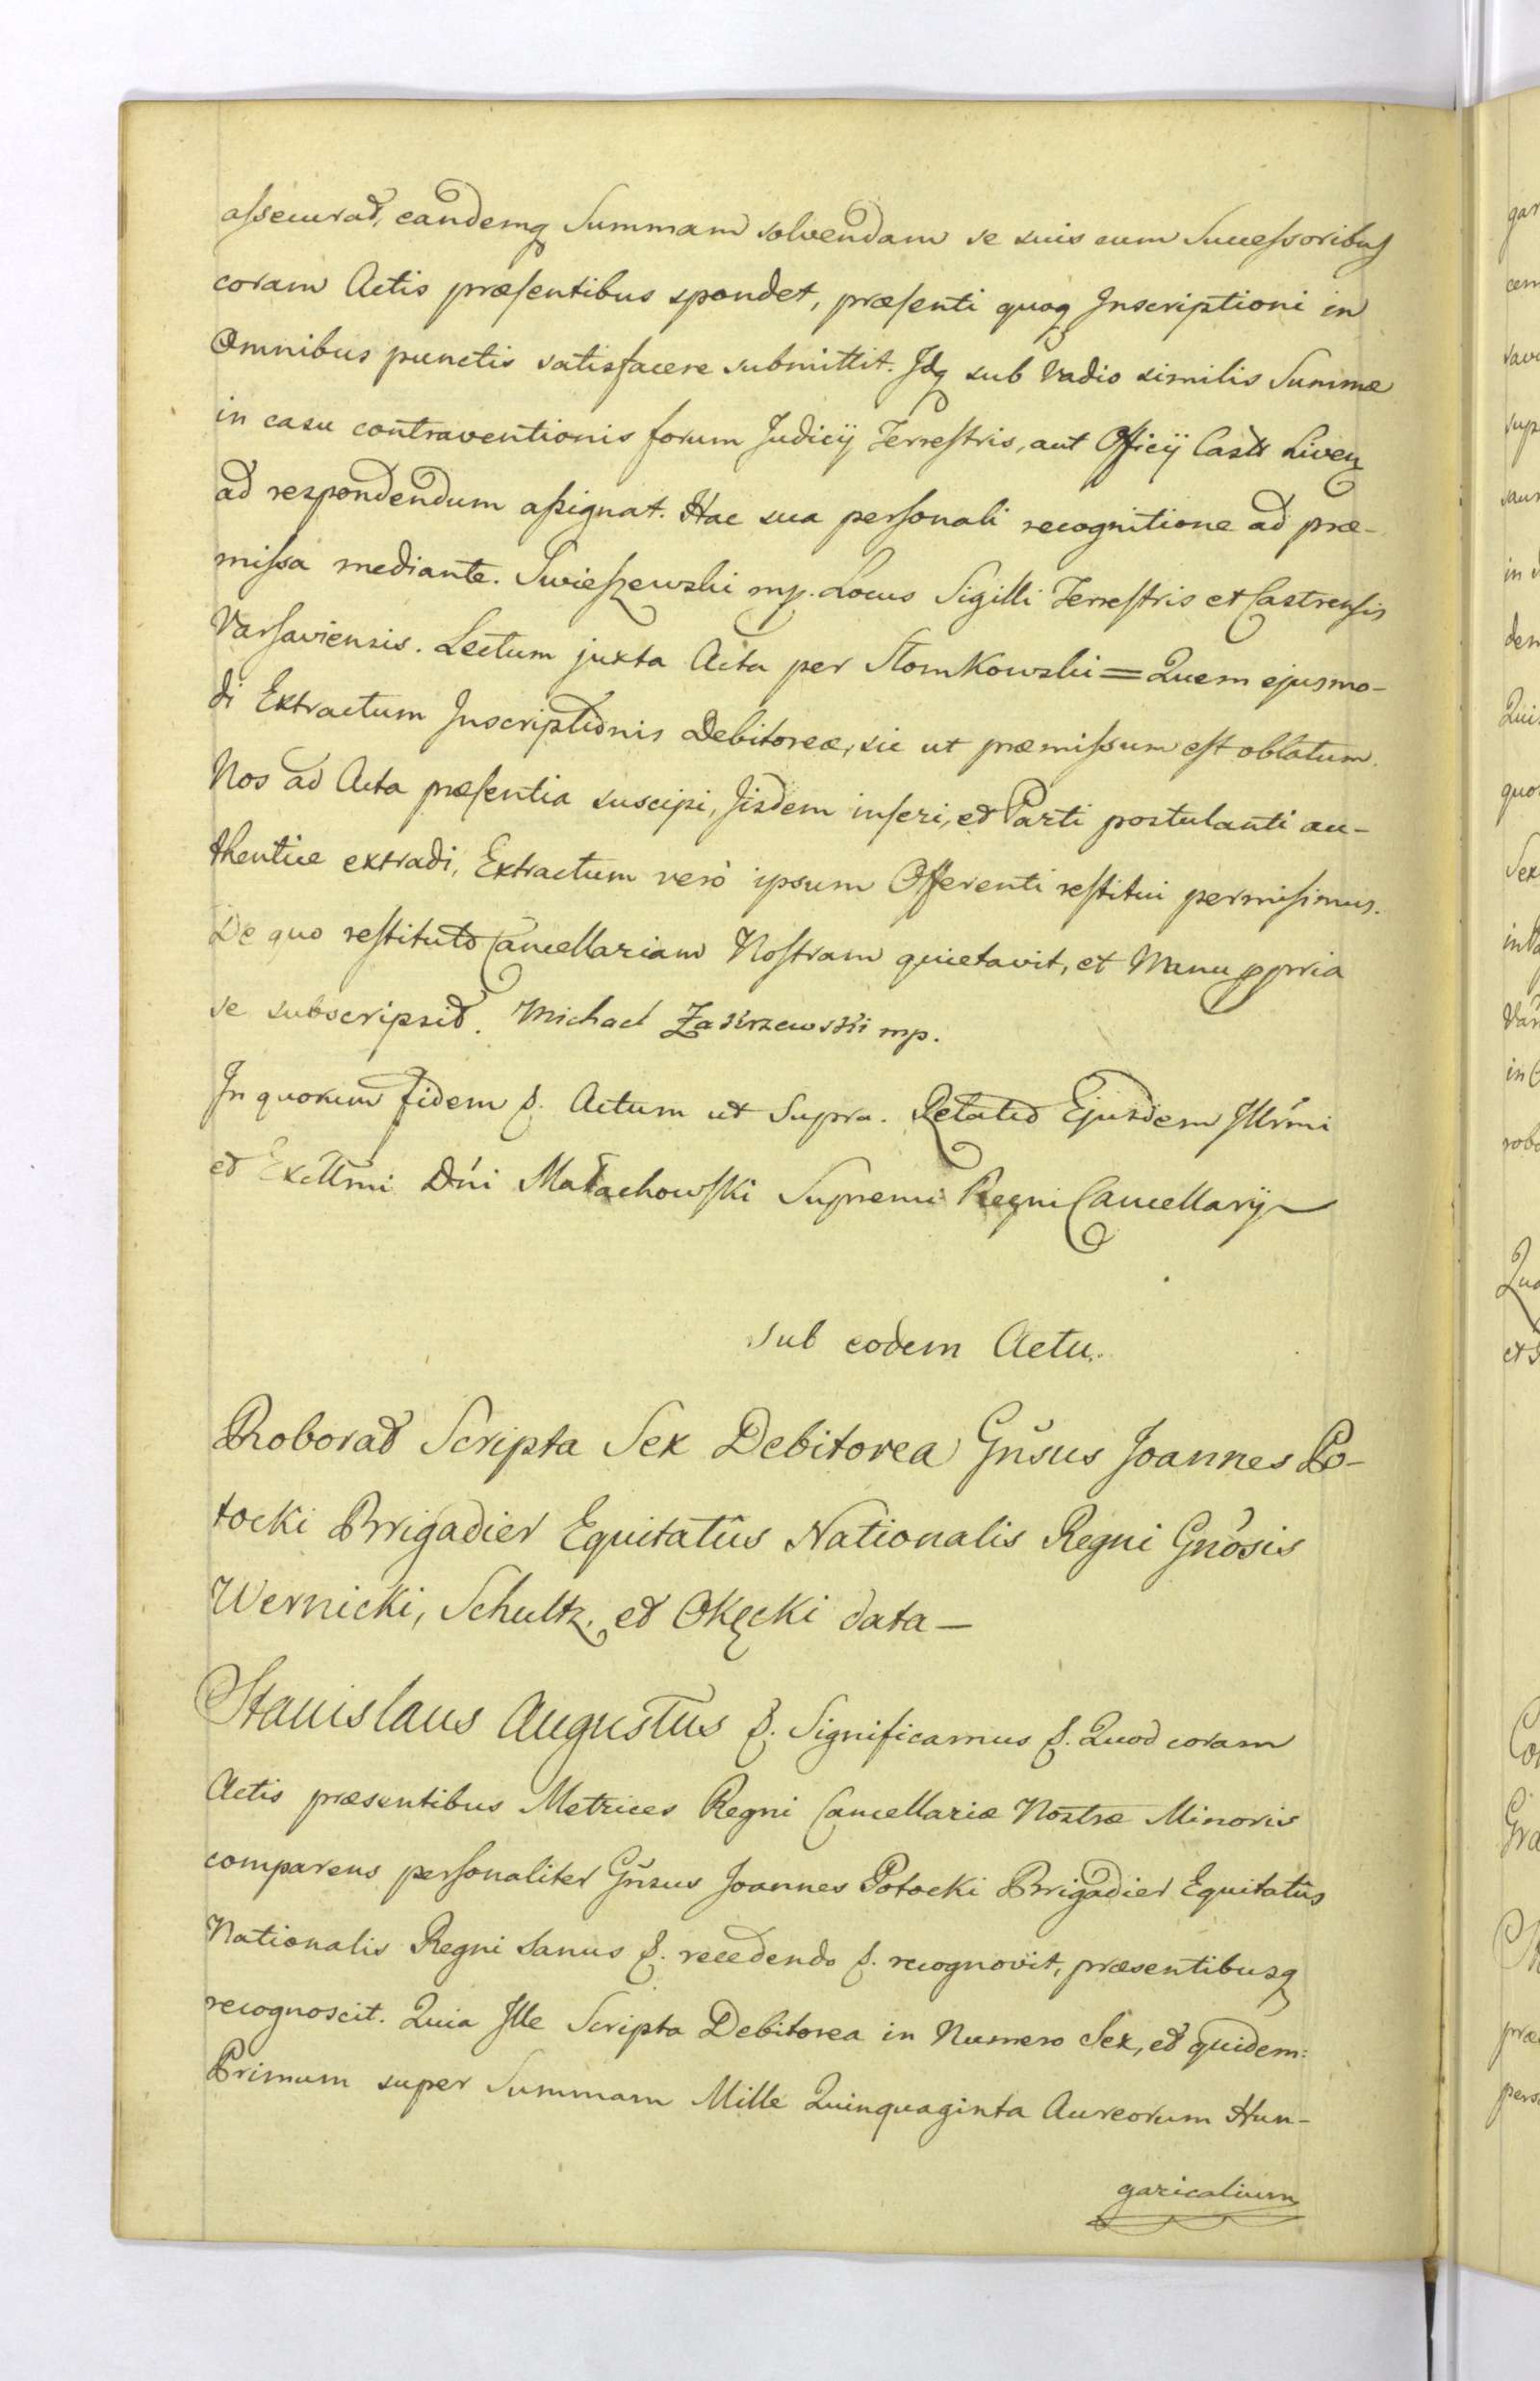 assecurat, eandemq Summam solvendam se suis cum Successoribus
coram Actis præsentibus spondet, præsenti quoq Inscriptioni in
Omnibus punctis satisfacere submittit. Idq sub Vadio similis Summæ
in casu contraventionis forum Judicij Terrestris, aut Officij Castr Liven
ad respondendum assignat. Hac sua personali recognitione ad præ-
missa mediante. Swieszewski mp. Locus Sigilli Terrestris et Castrensis
Varsaviensis. Lectum juxta Acta per Słomkowski = Quem ejusmo-
di Extractum Inscriptionis Debitoreæ, sic ut præmissum est oblatum.
Nos ad Acta præsentia suscipi, Iisdem inseri, et Parti postulanti au-
thentice extradi, Extractum verò ipsum Offerenti restitui permisimus.
De quo restituto Cancellariam Nostram quietavit, et Manu ppria
se subscripsit. Michael Zakrzewski mp.
In quorum fidem &. Actum ut Supra. Relatio Ejusdem Illrmi
et Excllmi Dni Małachowski Supremi Regni Cancellarij
sub eodem Actu.
Roborat Scripta Sex Debitorea Gnsus Joannes Po-
tocki Brigadier Equitatûs Nationalis Regni Gnosis
Wernicki, Schultz, et Okęcki data —
Stanislaus Augustus &. Significamus &. Quod coram
Actis præsentibus Metrices Regni Cancellariæ Nostræ Minoris
comparens personaliter Gnsus Joannes Potocki Brigadier Equitatûs
Nationalis Regni sanus &. recedendo &. recognovit, præsentibusq
recognoscit. Quia Ille Scripta Debitorea in Numero Sex, et quidem:
Primum super Summam Mille Quinquaginta Aureorum Hun-
garicalium